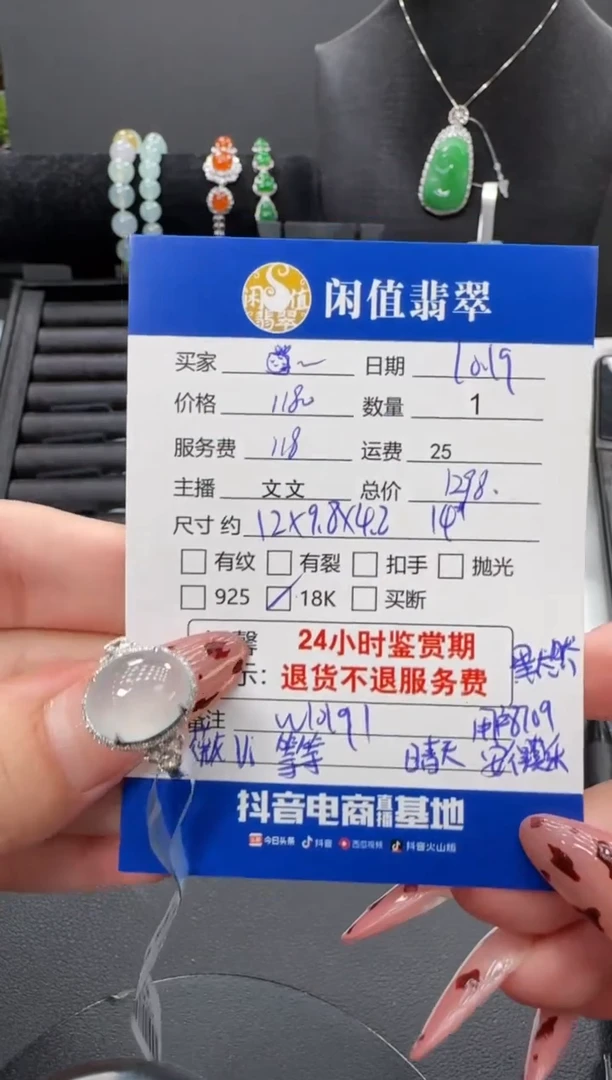 闲值翡翠
闲值翡翠
买家 日期 10.19
价格 1180 数量 1
服务费 118 运费 25
主播 文文 总价 1298.
尺寸 约 12X9.8X4.2 14#
有纹 有裂 扣手 抛光
925 18K 买断
24小时鉴赏期
示：退货不退服务费
备注 W10191 用户8109
等等 晴天
抖音电商直播基地
今日头条 抖音 西瓜视频 抖音火山版